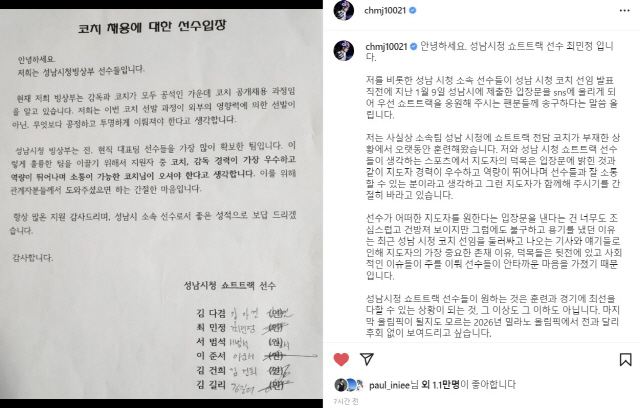 코치 채용에 대한 선수입장
안녕하세요.
저희는 성남시청빙상부 선수들입니다.
현재 저희 빙상부는 감독과 코치가 모두 공석인 가운데 코치 공개채용 과정임
을 알고 있습니다. 저희는 이번 코치 선발 과정이 외부의 영향력에 의한 선발이
아닌, 무엇보다 공정하고 투명하게 이뤄져야 한다고 생각합니다.
성남시청 빙상부는 전, 현직 대표팀 선수들을 가장 많이 확보한 팀입니다. 이
렇게 훌륭한 팀을 이끌기 위해서 지원자 중 코치, 감독 경력이 가장 우수하고
역량이 뛰어나며 소통이 가능한 코치님이 오셔야 한다고 생각합니다. 이를 위해
관계자분들께서 도와주셨으면 하는 간절한 마음입니다.
항상 많은 지원 감사드리며, 성남시 소속 선수로서 좋은 성적으로 보답 드리겠
습니다.
감사합니다.
성남시청 쇼트트랙 선수
김 다겸
최 민정
서 범석
이 준서
김 건희
김 길리
chmj10021
chmj10021 안녕하세요. 성남시청 쇼트트랙 선수 최민정 입
니다.
저를 비롯한 성남 시청 소속 선수들이 성남 시청 코치 선임 발표
직전에 지난 1월 9일 성남시에 제출한 입장문을 sns에 올리게 되
어 우선 쇼트트랙을 응원해 주시는 팬분들께 송구하다는 말씀 올
립니다.
저는 사실상 소속팀 성남 시청에 쇼트트랙 전담 코치가 부재한 상
황에서 오랫동안 훈련해왔습니다. 저와 성남 시청 쇼트트랙 선수
들이 생각하는 스포츠에서 지도자의 덕목은 입장문에 밝힌 것과
같이 지도자 경력이 우수하고 역량이 뛰어나며 선수들과 잘 소통
할 수 있는 분이라고 생각하고 그런 지도자가 함께해 주시기를 간
절히 바라고 있습니다.
선수가 어떠한 지도자를 원한다는 입장문을 낸다는 건 너무도 조
심스럽고 건방져 보이지만 그럼에도 불구하고 용기를 냈던 이유
는 최근 성남 시청 코치 선임을 둘러싸고 나오는 기사와 얘기들로
인해 지도자의 가장 중요한 존재 이유, 덕목들은 뒷전에 있고 사회
적인 이슈들이 주를 이뤄 선수들이 안타까운 마음을 가졌기 때문
입니다.
성남시청 쇼트트랙 선수들이 원하는 것은 훈련과 경기에 최선을
다할 수 있는 상황이 되는 것, 그 이상도 그 이하도 아닙니다. 마지
막 올림픽이 될지도 모르는 2026년 밀라노 올림픽에서 전과 달리
후회 없이 보여드리고 싶습니다.
paul_iniee님 외 1.1만명이 좋아합니다
7시간 전